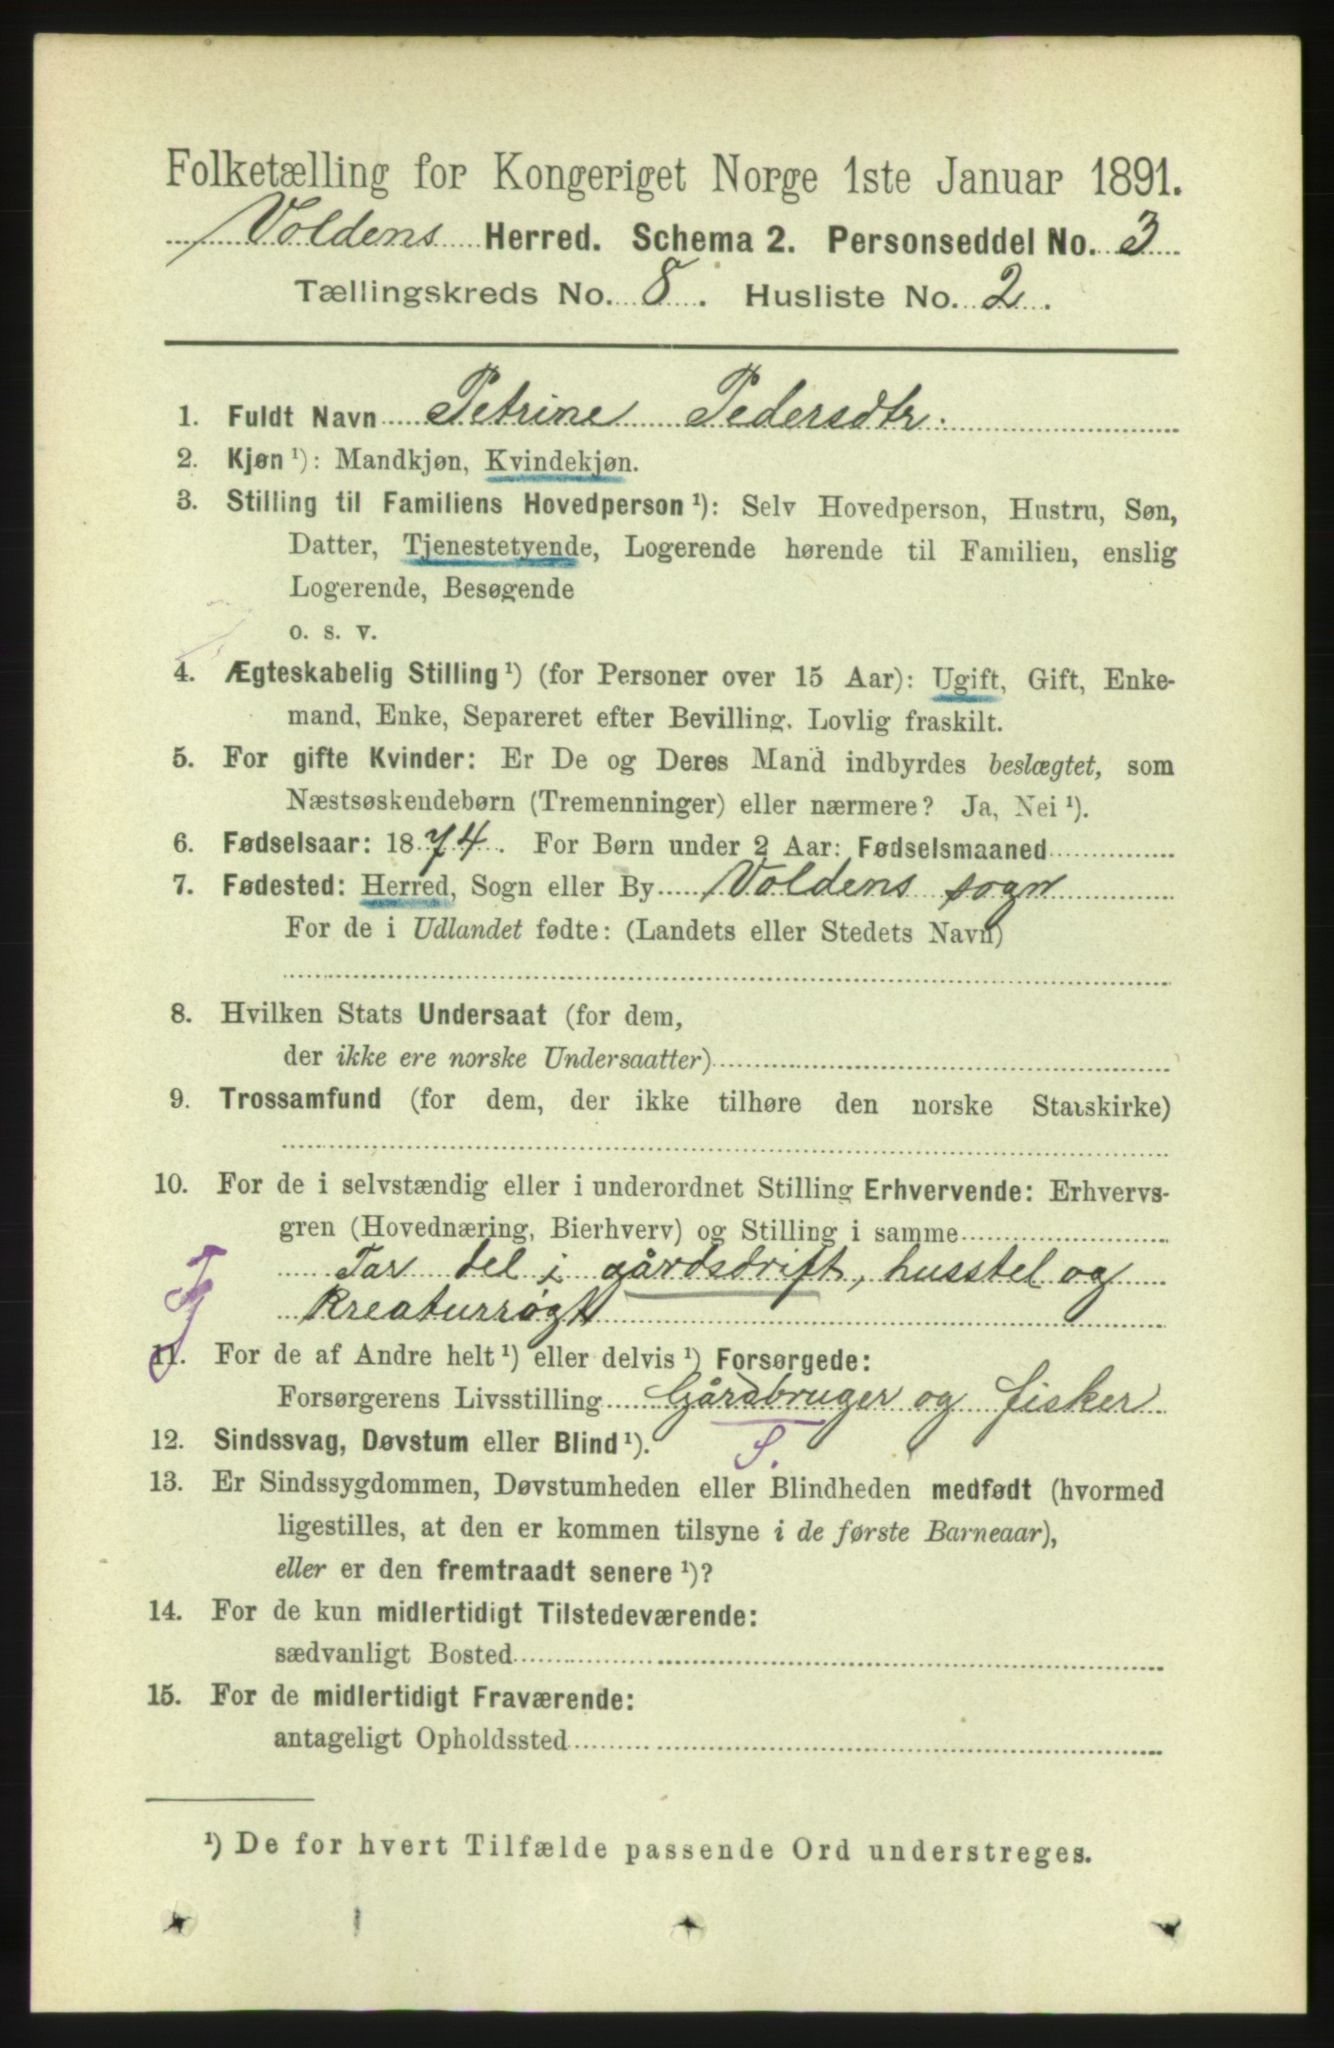 Folketælling for Kongeriget Norge 1ste Januar 1891.
Voldens Herred. Schema 2. Personseddel No. 3
Tællingskreds No. 8. Husliste No. 2.
1. Fuldt Navn Petrine Pedersdtr.
2. Kjøn ¹): Mandkjøn, Kvindekjøn.
3. Stilling til Familiens Hovedperson ¹): Selv Hovedperson, Hustru, Søn,
Datter, Tjenestetyende, Logerende hørende til Familien, enslig
Logerende, Besøgende
o. s. v.
4. Ægteskabelig Stilling ¹) (for Personer over 15 Aar): Ugift, Gift, Enke-
mand, Enke, Separeret efter Bevilling. Lovlig fraskilt.
5. For gifte Kvinder: Er De og Deres Mand indbyrdes beslægtet, som
Næstsøskendebørn (Tremenninger) eller nærmere? Ja, Nei ¹).
6. Fødselsaar: 1874. For Børn under 2 Aar: Fødselsmaaned
7. Fødested: Herred, Sogn eller By Voldens sogn
For de i Udlandet fødte: (Landets eller Stedets Navn)
8. Hvilken Stats Undersaat (for dem,
der ikke ere norske Undersaatter)
9. Trossamfund (for dem, der ikke tilhøre den norske Statskirke)
10. For de i selvstændig eller i underordnet Stilling Erhvervende: Erhvervs-
gren (Hovednæring, Bierhverv) og Stilling i samme
Tar del i gårdsdrift, husstel og
Tj kreaturrøgt
11. For de af Andre helt ¹) eller delvis ¹) Forsørgede:
Forsørgerens Livsstilling Gårdbruger og fisker
12. Sindssvag, Døvstum eller Blind ¹). S.
13. Er Sindssygdommen, Døvstumheden eller Blindheden medfødt (hvormed
ligestilles, at den er kommen tilsyne i de første Barneaar),
eller er den fremtraadt senere ¹)?
14. For de kun midlertidigt Tilstedeværende:
sædvanligt Bosted
15. For de midlertidigt Fraværende:
antageligt Opholdssted
¹) De for hvert Tilfælde passende Ord understreges.